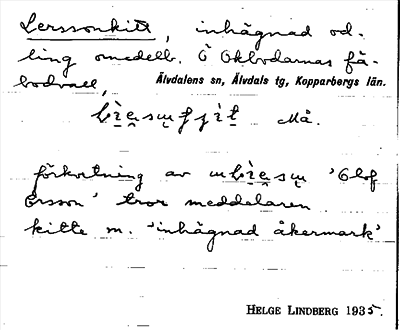 Lerssonkitt, inhägnad od-
ling omedelb. Ö Okbodarnas fä-
bodvall, Älvdalens sn, Älvdals tg, Kopparbergs län.
Må.
förkortning av 'Olof
Ersson' tror meddelaren
kitte m. 'inhägnad åkermark'
HELGE LINDBERG 1935.